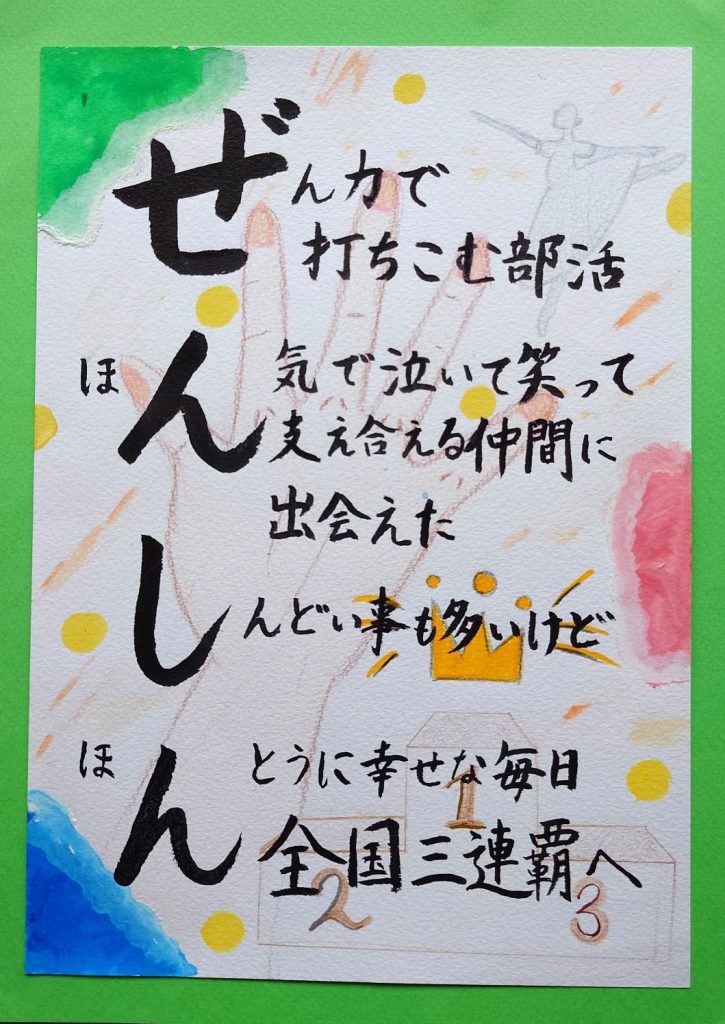 ぜん力で
打ちこむ部活
ほん気で泣いて笑って
支え合える仲間に
出会えた
しんどい事も多いけど
ほんとうに幸せな毎日
全国三連覇へ
1
2
3